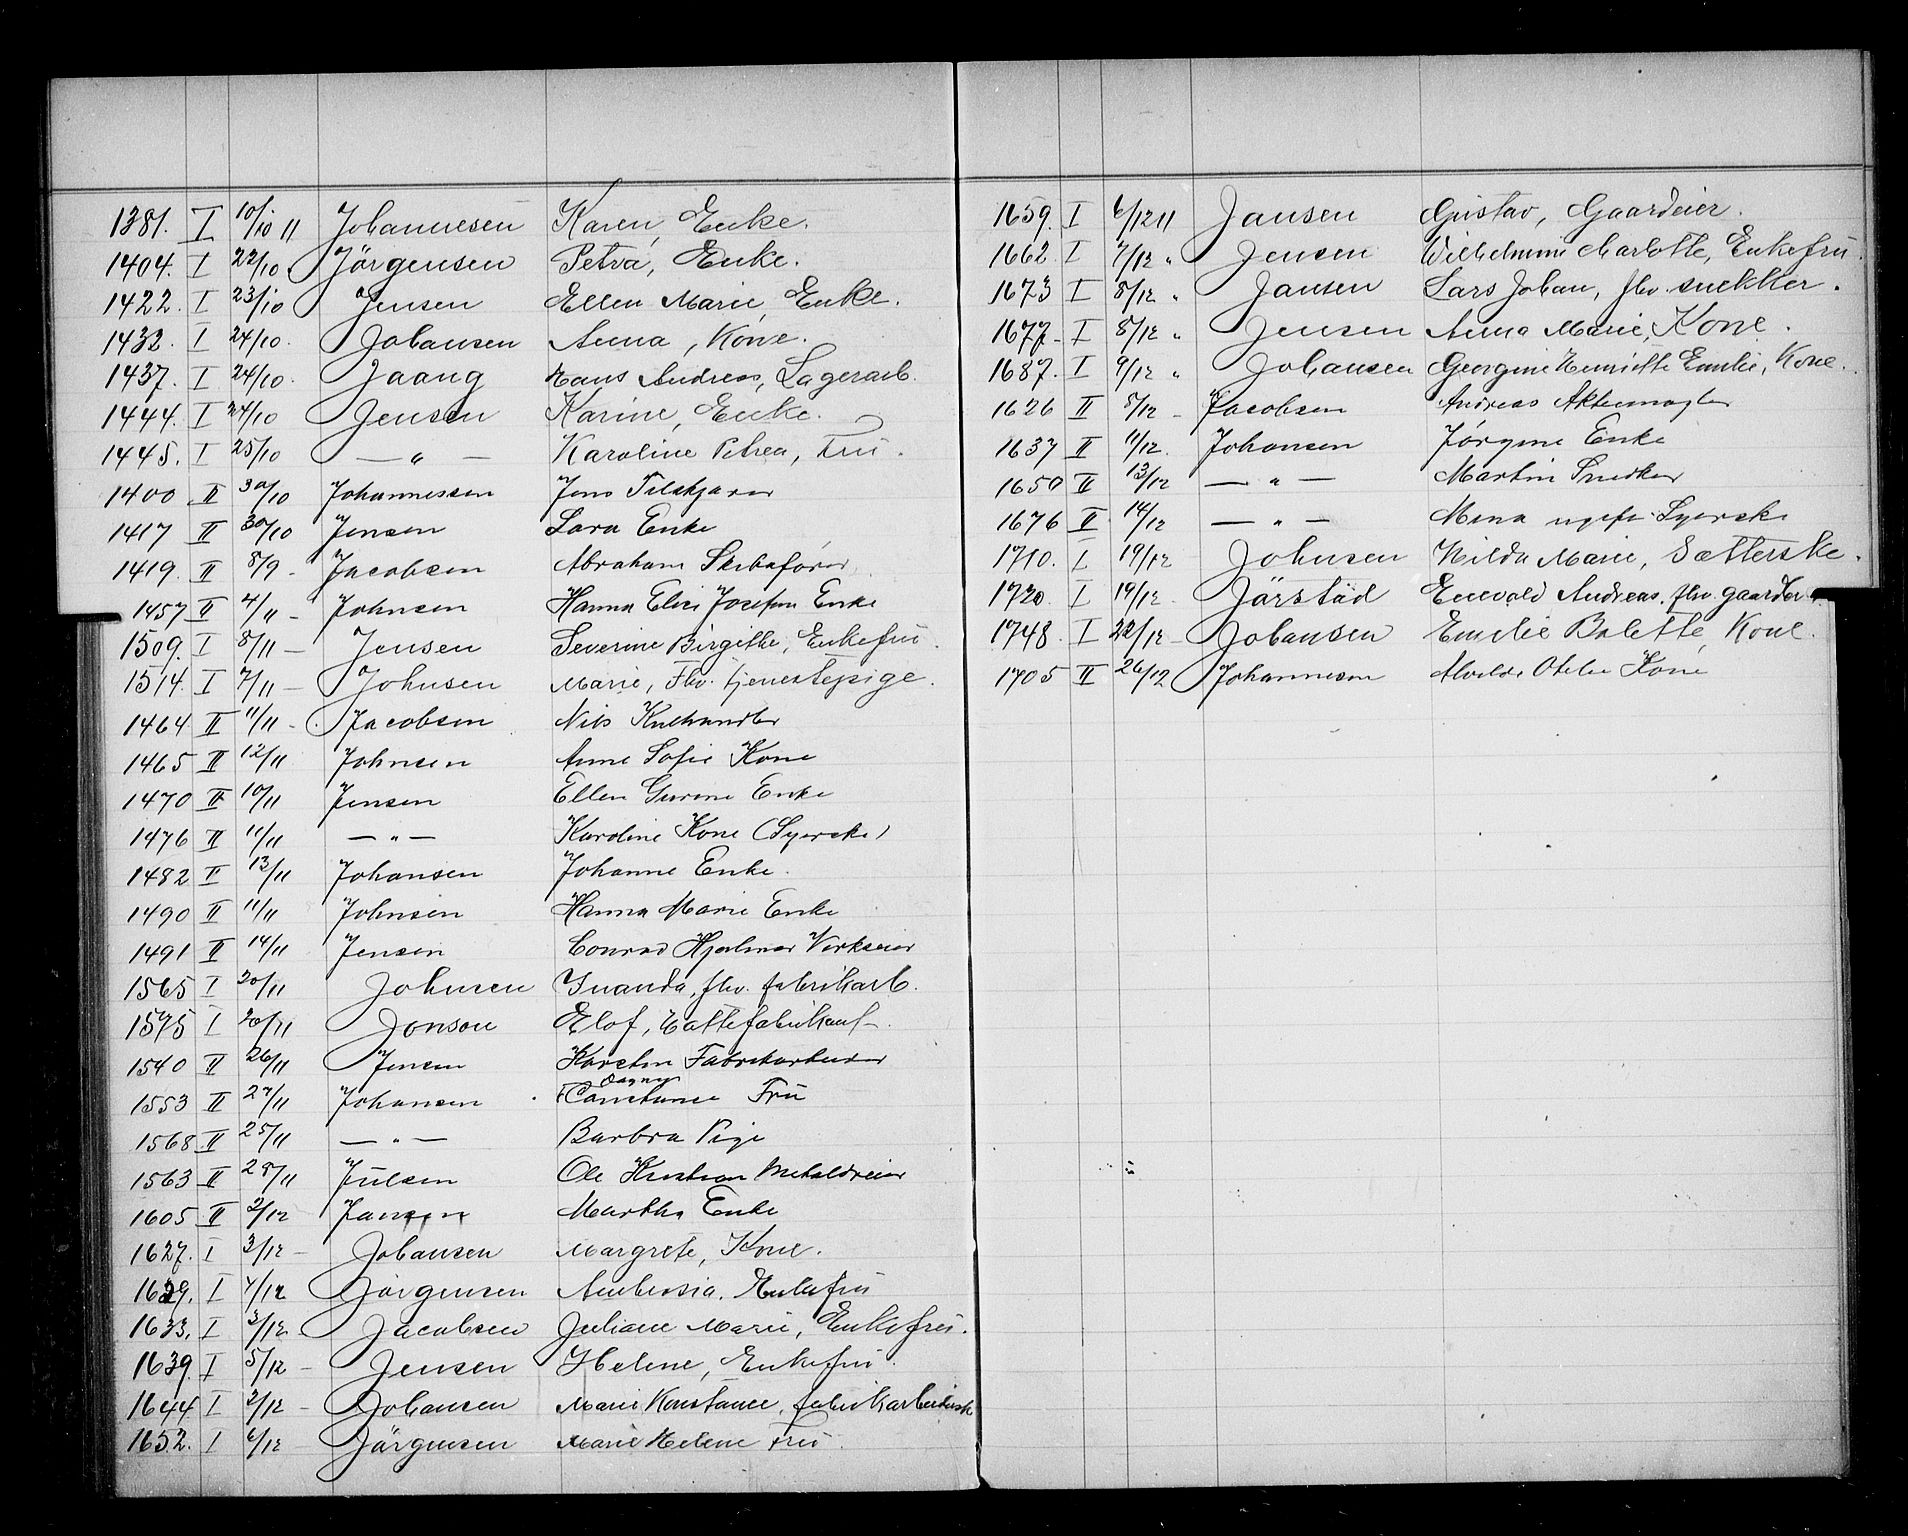 1381. I 10/10 11 Johannesen Karen, Enke.
1404. I 22/10. Jörgensen Petra, Enke.
1422. I 23/10 Jensen Ellen Marie, Enke.
1432. I 24/10. Johansen Anna, Kone.
1437. I 24/10. Jaang Hans Andreas, Lagerarb.
1444. I 24/10 Jensen Karine, Enke.
1445. I 25/10 — " — Karoline Petrea, Fru.
1400 II 30/10 Johannessen Jens
1417 II 30/10 Jensen Lara Enke
1419. II 8/9 - Jacobsen Abraham Skibsfører
1457 II 4/11 - Johnsen Hanna Elise Josefine Enke
1509. I 8/11 — Jensen Severine Birgitte, Enkefru.
1514. I 7/11 — Johnsen Marie, Fhv. tjenestepige.
1464 II 11/11 - Jacobsen Nils Kulhandler
1465 II 12/11 Johnsen Anne Sofie Kone
1470 II 10/11 Jensen Ellen Gurine Enke
1476 II 11/11 — " — Karoline Kone (Syerske)
1482 II 13/11 Johansen Johanne Enke.
1490 II 11/11 Johnsen Hanna Marie Enke
1491 II 14/11 Jensen Conrad Hjalmar Verkseier
1565 I 20/11 Johnsen fhv. fabrikarb.
1575 I 20/11 Jonson Elof, Hattefabrikant.
1540 II 26/11 Jensen Karsten Fabrikarbeider
1553 II 27/11 Johansen Dagny Constance Fru
1568 II 25/11 — " — Barbra Pige
1563 II 28/11 Julsen Ole Kristian Metaldreier
1605 II 2/12 Jansen Martha Enke
1627. I 3/12 — Johansen Margrete, Kone.
1629. I 4/12 Jörgensen Ambrosia. Enkefru
1633. I 3/12 - Jacobsen Juliane Marie, Enkefru.
1639. I 5/12 — Jensen Helene, Enkefru.
1644 I 2/12 — Johansen Marie Konstance, fabrikarbeiderske
1652. I 6/12 — Jörgensen Marie Helene Fru
1659. I 6/12 11 Jansen Gustav, Gaardeier.
1662. I 7/12 " Jensen Wilhelmine Charlotte, Enkefru.
1673 I 8/12 " Jansen Lars Johan, fhv. snekker.
1677 - I 8/12 " Jensen Anna Marie, Kone.
1687. I 9/12 " Johansen Georgine Henriette Emilie, Kone.
1626 II 8/12 - Jacobsen Andreas Aktiemægler
1637 II 11/12. Johansen Jørgine Enke
1650 II 13/12 — " — Martin Snedker
1676 II 14/12 — " — Mina ugift Syerske
1710. I 19/12 Johnsen Hilda Marie, Sætterske.
1720. I 19/12 - Järstäd Enevald Andreas. fhv. gaardbr.
1748. I 22/12 — Johansen Emilie Bolette, Kone.
1705 II 26/12 Johannesen Alvilde Otelie Kone